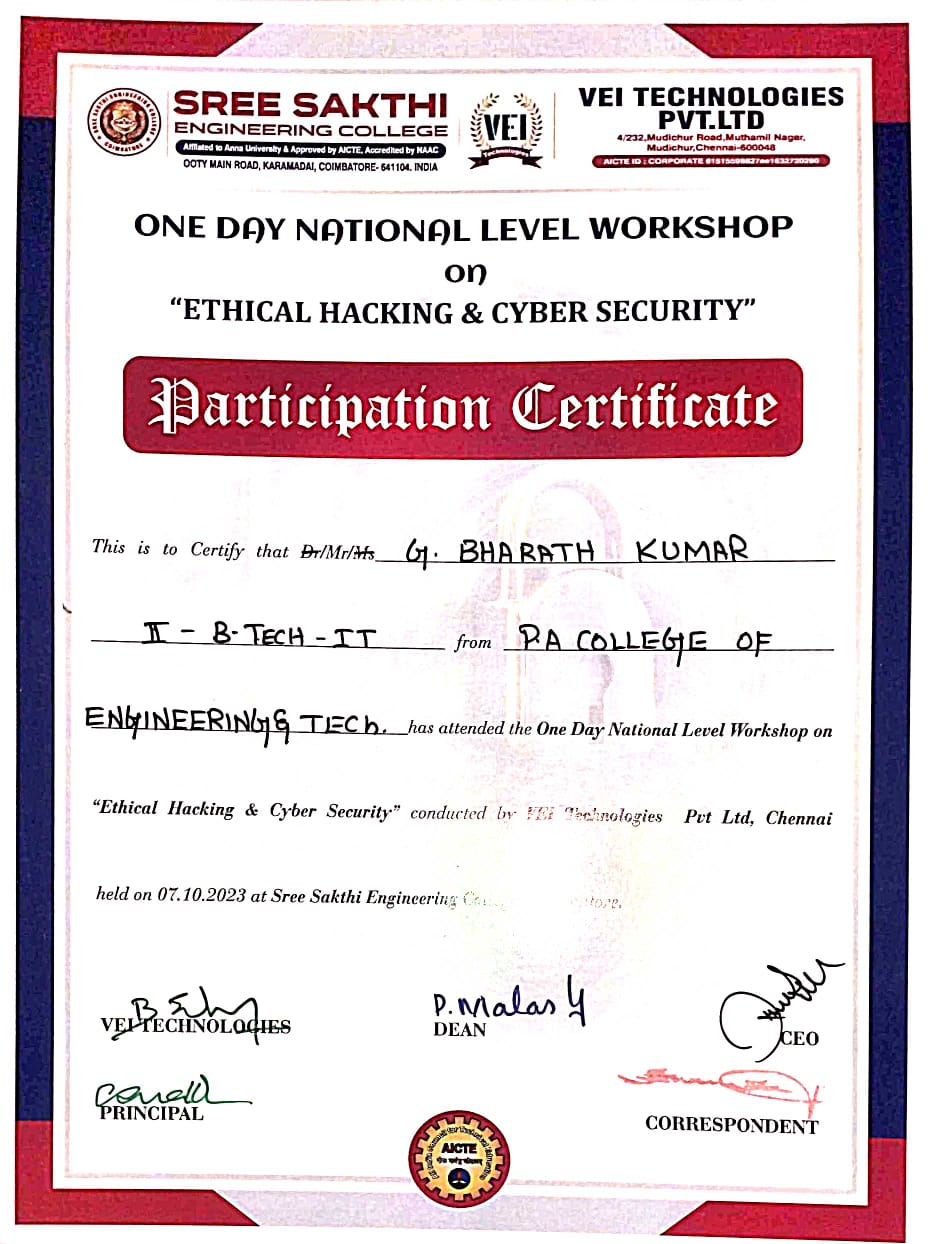 SREE SAKTHI
ENGINEERING COLLEGE
Affliated to Anna University & Approved by AICTE, Accredited by NAAC
OOTY MAIN ROAD, KARAMADAI, COIMBATORE- 641104. INDIA
VEI
VEI TECHNOLOGIES
PVT.LTD
4/232,Mudichur Road,Muthamil Nagar,
Mudichur,Chennai-600048
AICTE ID : CORPORATE
ONE DAY NATIONAL LEVEL WORKSHOP
on
“ETHICAL HACKING & CYBER SECURITY”
Participation Certificate
This is to Certify that Dr/Mr/Ms G. BHARATH KUMAR
II - B-TECH - IT from P.A COLLEGE OF
ENGINEERING & TECH. has attended the One Day National Level Workshop on
“Ethical Hacking & Cyber Security” conducted by VEI Technologies Pvt Ltd, Chennai
held on 07.10.2023 at Sree Sakthi Engineering
P. Malas
VEI TECHNOLOGIES
DEAN
CEO
PRINCIPAL
CORRESPONDENT
AICTE